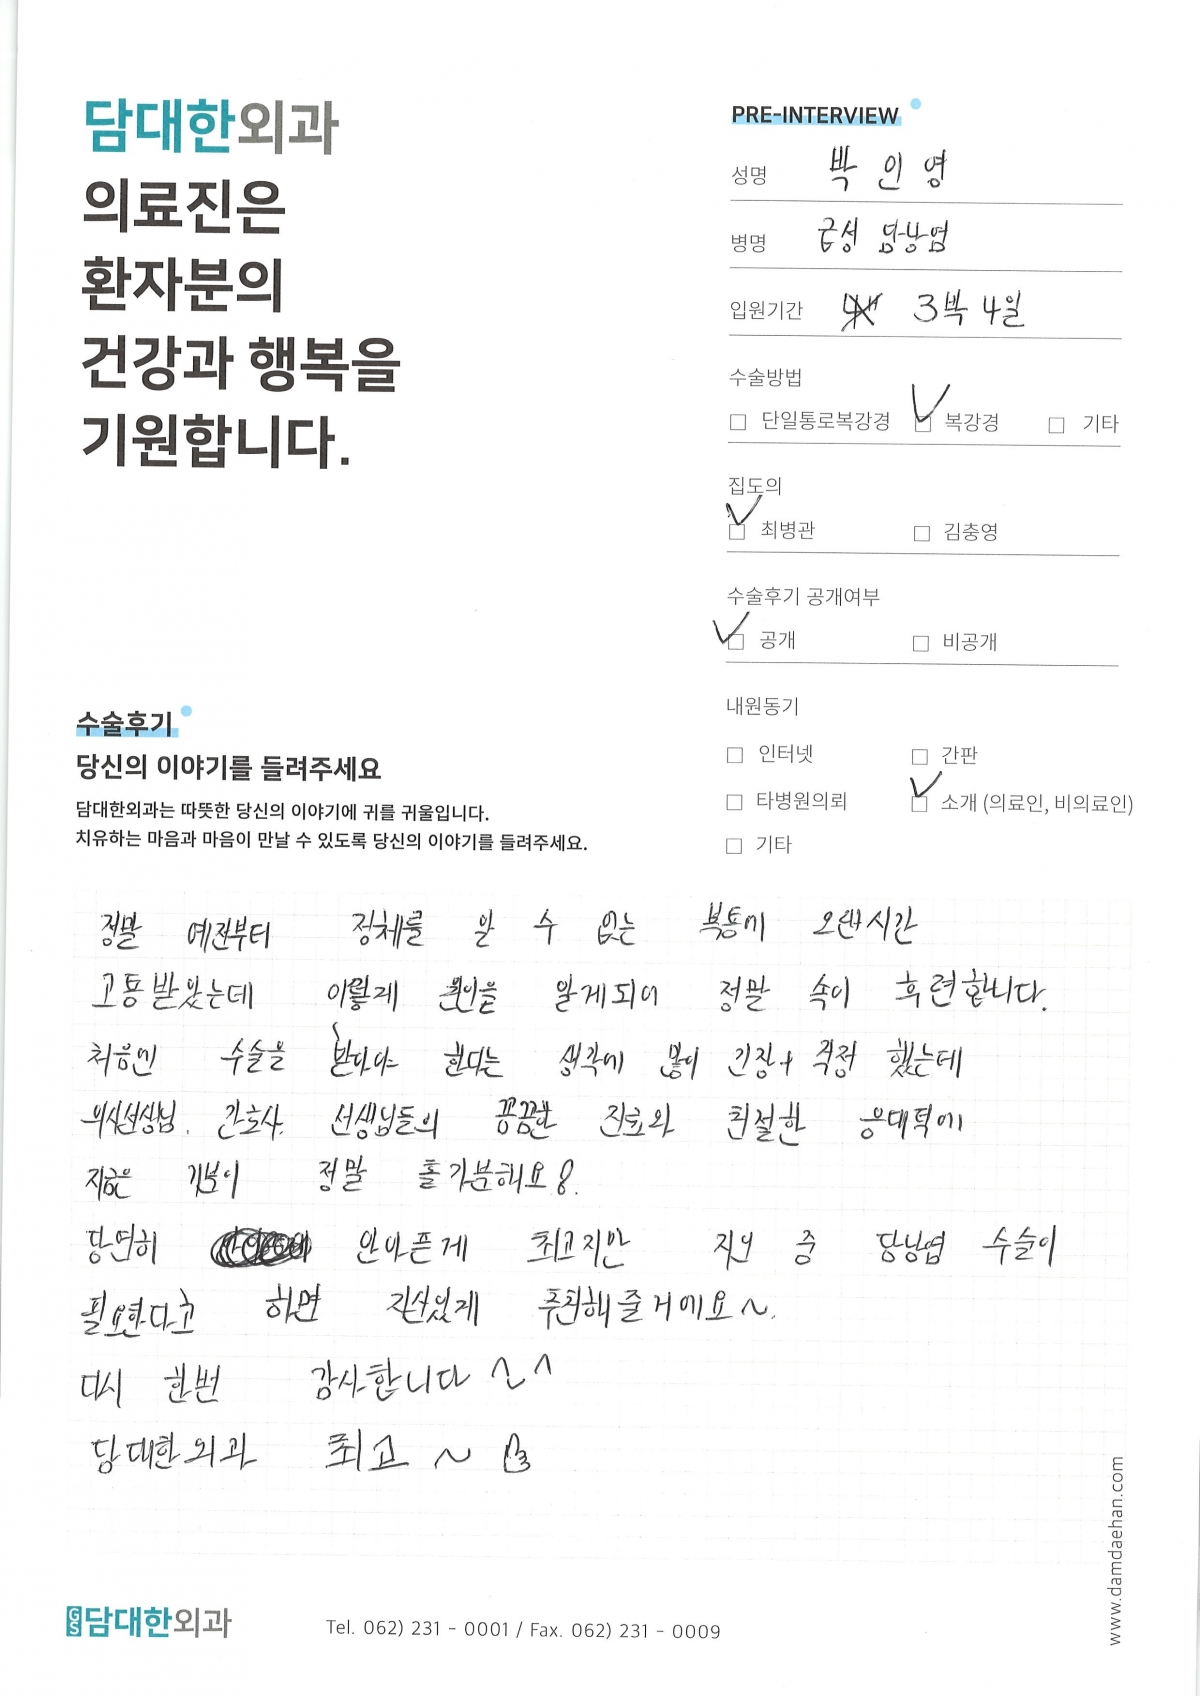 담대한외과
의료진은
환자분의
건강과 행복을
기원합니다.
PRE-INTERVIEW
성명 박인영
병명 급성 담낭염
입원기간 3박 4일
수술방법
□ 단일통로복강경 ☑ 복강경 □ 기타
집도의
☑ 최병관 □ 김충영
수술후기 공개여부
☑ 공개 □ 비공개
내원동기
□ 인터넷 □ 간판
□ 타병원의뢰 ☑ 소개 (의료인, 비의료인)
□ 기타
수술후기
당신의 이야기를 들려주세요
담대한외과는 따뜻한 당신의 이야기에 귀를 귀울입니다.
치유하는 마음과 마음이 만날 수 있도록 당신의 이야기를 들려주세요.
정말 예전부터 정체를 알 수 없는 복통에 오랜시간
고통받았는데 이렇게 원인을 알게되어 정말 속이 후련합니다.
처음엔 수술을 받아야 한다는 생각에 많이 긴장+걱정 했는데
의사선생님, 간호사, 선생님들의 꼼꼼한 진료와 친절한 응대덕에
지금은 기분이 정말 홀가분해요!
당연히 안아픈게 최고지만 지인 중 담낭염 수술이
필요한다고 하면 자신있게 추천해줄거에요~.
다시 한번 감사합니다 ^^
담대한외과 최고~
GS담대한외과
Tel. 062) 231 - 0001 / Fax. 062) 231 - 0009
www.damdaehan.com